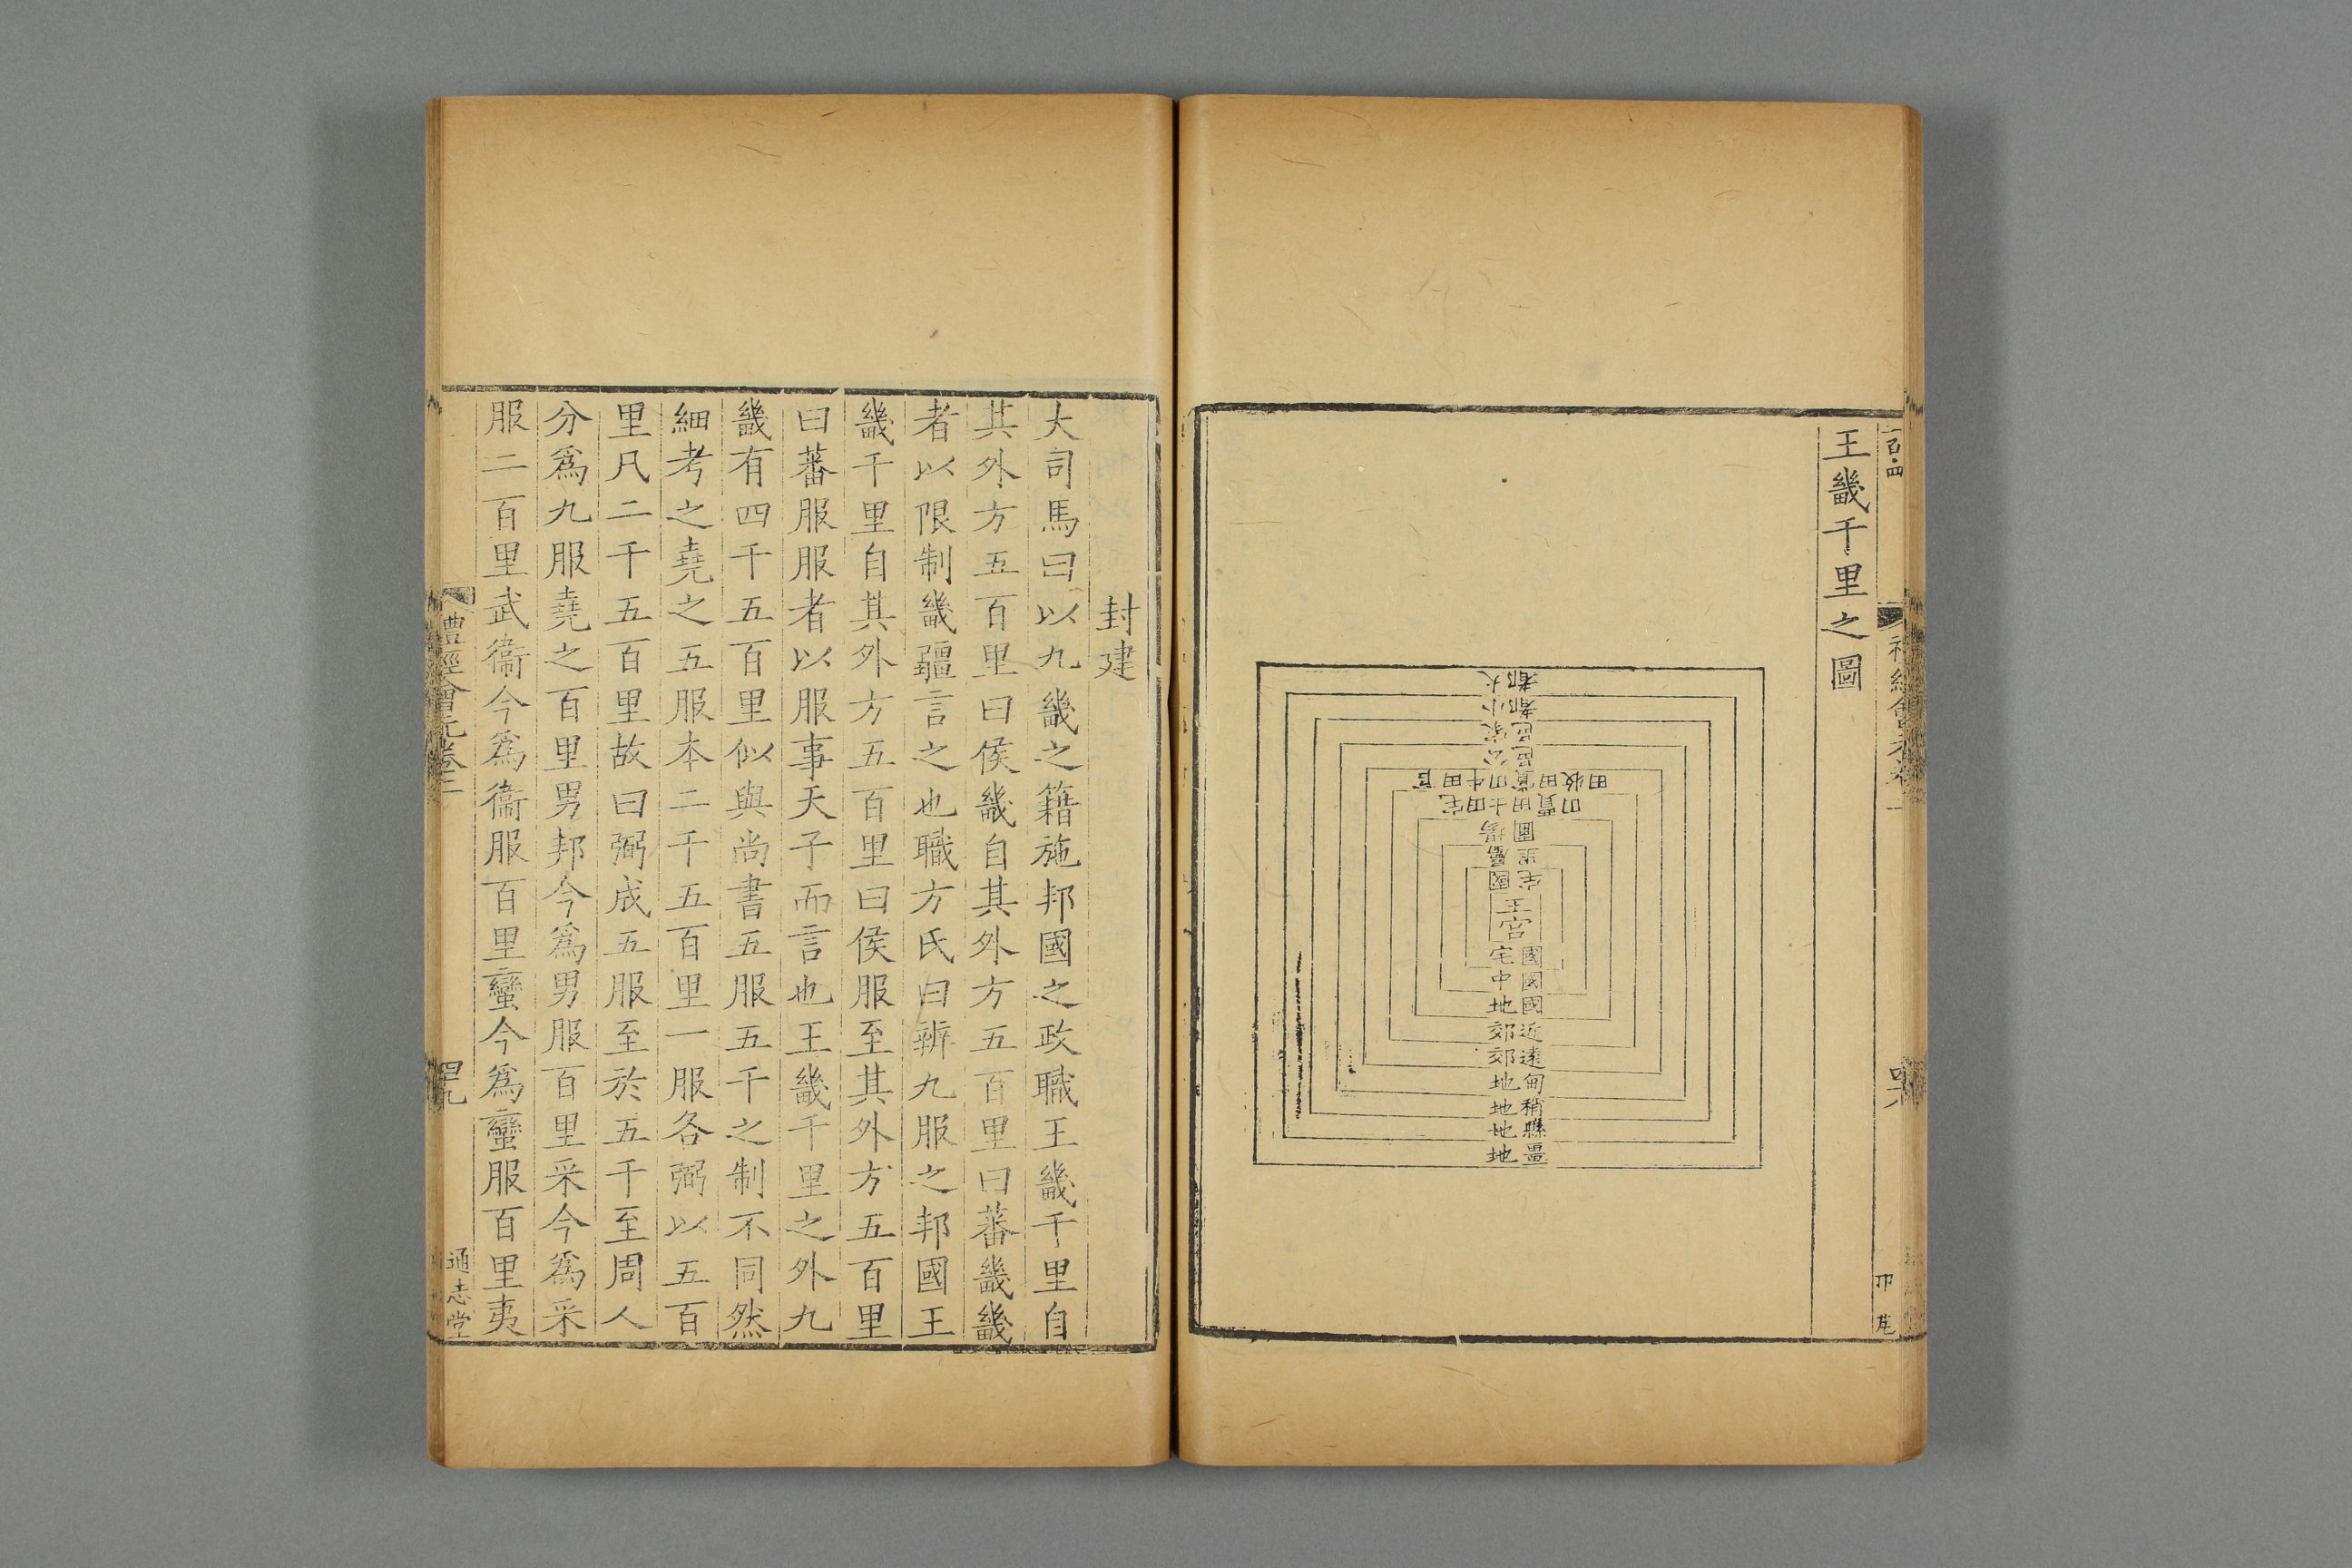 王畿千里之圖
大都
小都
家邑
公邑
官田牛田賞田牧田
宅田士田賈田
場圃
廛里
國宅
王宮
國宅
國中
國地
近郊
遠郊
甸地
稍地
縣地
畺地
封建
大司馬曰以九畿之籍施邦國之政職王畿千里自
其外方五百里曰侯畿自其外方五百里曰蕃畿畿
者以限制畿疆言之也職方氏曰辨九服之邦國王
畿千里自其外方五百里曰侯服至其外方五百里
曰蕃服服者以服事天子而言也王畿千里之外九
畿有四千五百里似與尚書五服五千之制不同然
細考之堯之五服本二千五百里一服各弼以五百
里凡二千五百里故曰弼成五服至於五千至周人
分爲九服堯之百里男邦今爲男服百里采今爲采
服二百里武衞今爲衞服百里蠻今爲蠻服百里夷
禮經會元卷二
四九
通志堂